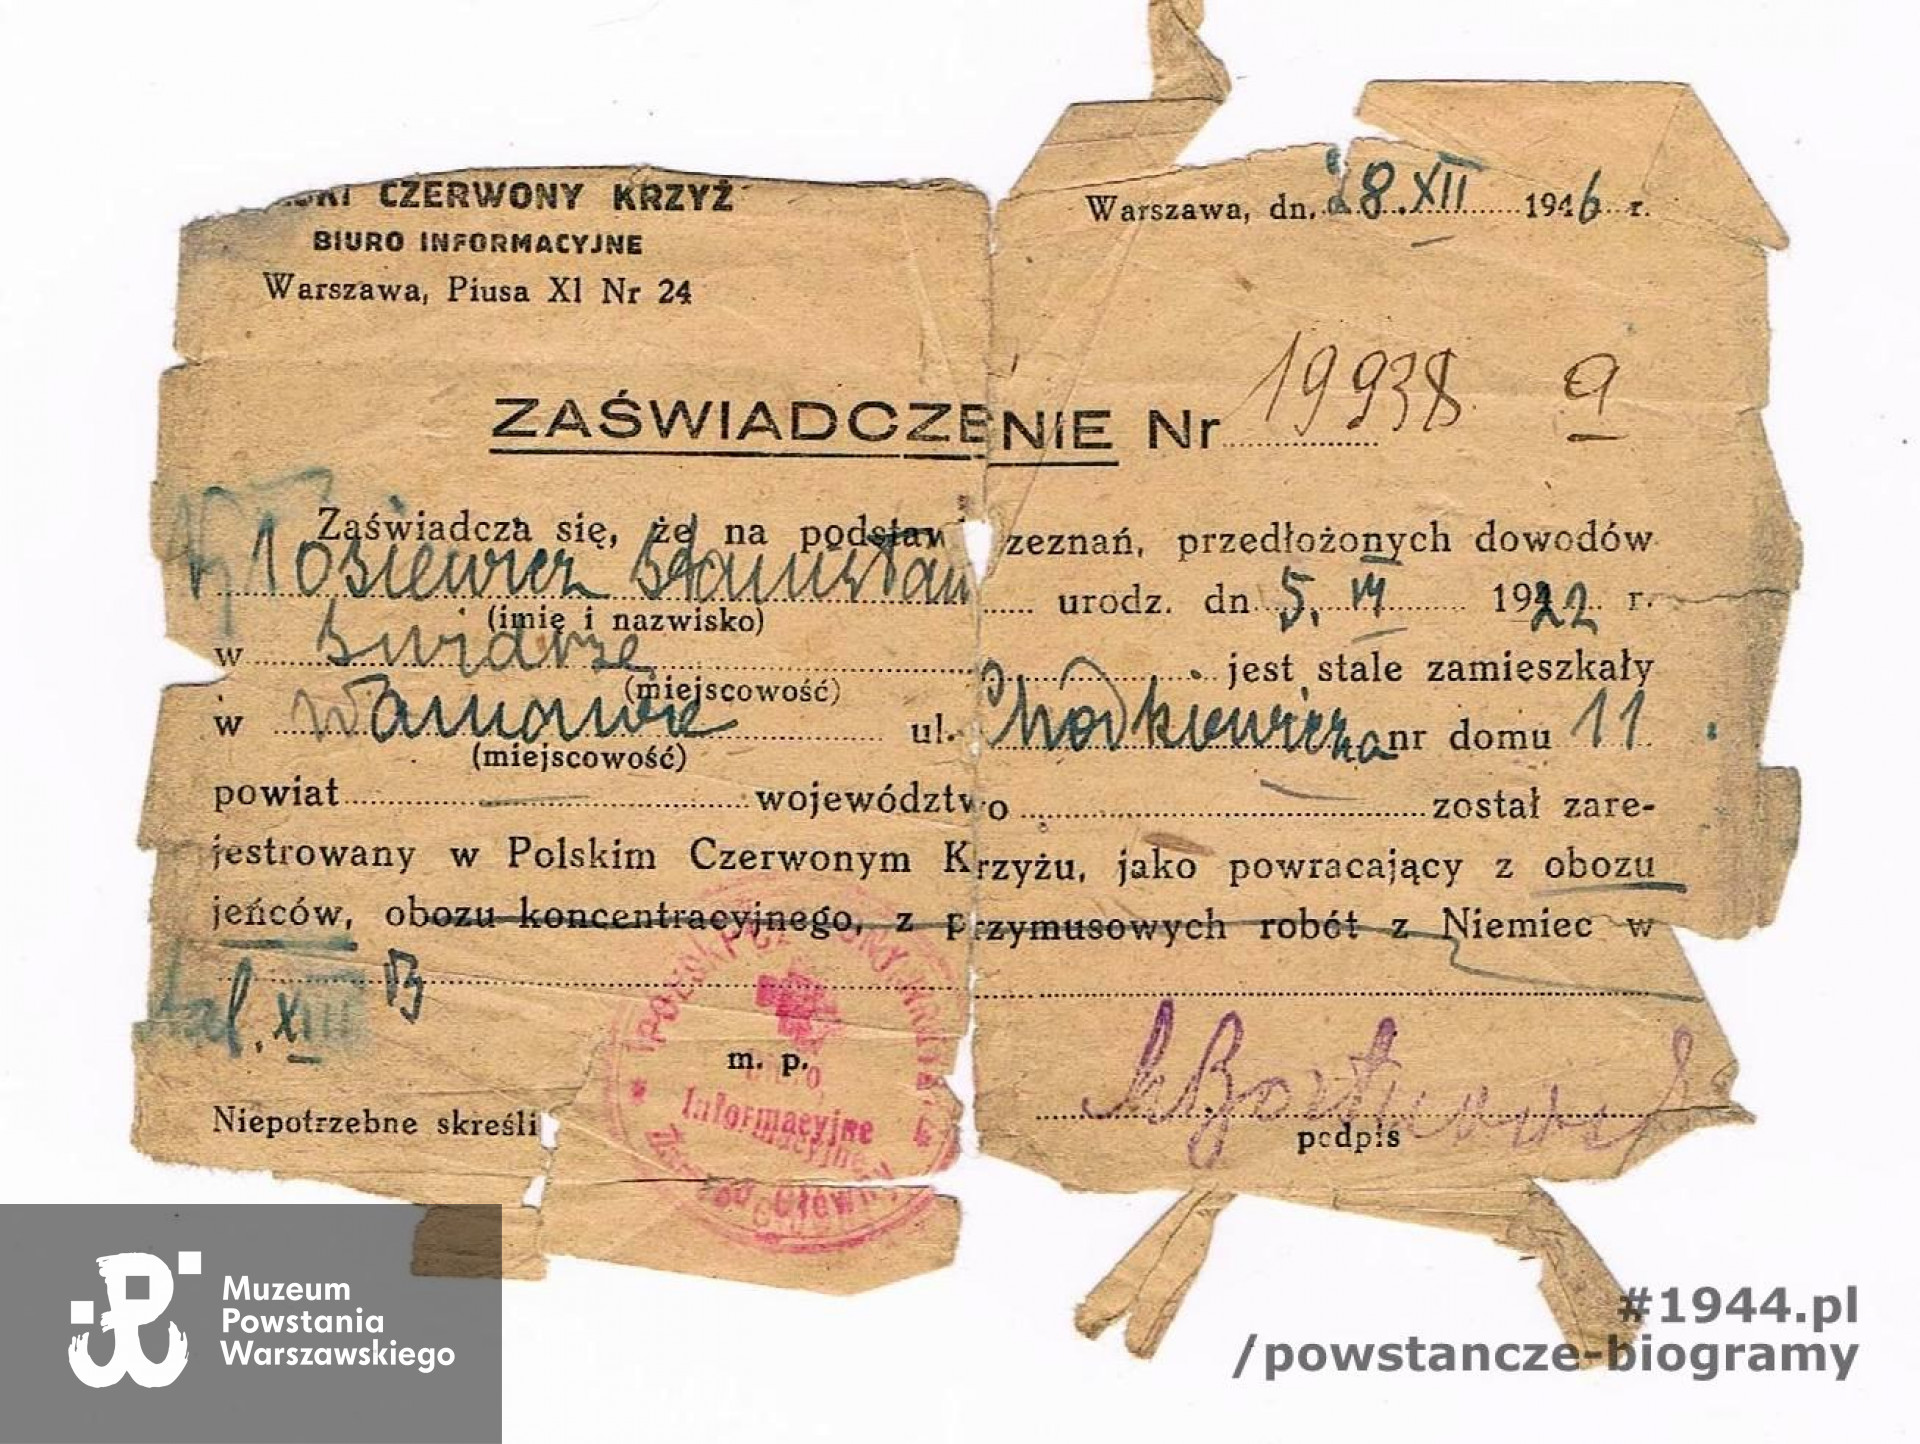 SKI CZERWONY KRZYŻ
BIURO INFORMACYJNE
Warszawa, Piusa XI Nr 24
Warszawa, dn. 28.XII 1946 r.
ZAŚWIADCZENIE Nr 19938 a
Zaświadcza się, że na podstaw zeznań, przedłożonych dowodów
Stanisław urodz. dn 5. VI 1922 r.
(imię i nazwisko)
w Świdrze jest stale zamieszkały
(miejscowość)
w Warszawie ul. Chodkiewicza nr domu 11.
(miejscowość)
powiat — województwo — został zare-
jestrowany w Polskim Czerwonym Krzyżu, jako powracający z obozu
jeńców, obozu koncentracyjnego, z przymusowych robót z Niemiec w
Stal. XIII B
m. p.
Niepotrzebne skreśli
podpis
Biuro
Informacyjne
Muzeum
Powstania
Warszawskiego
#1944.pl
/powstancze-biogramy